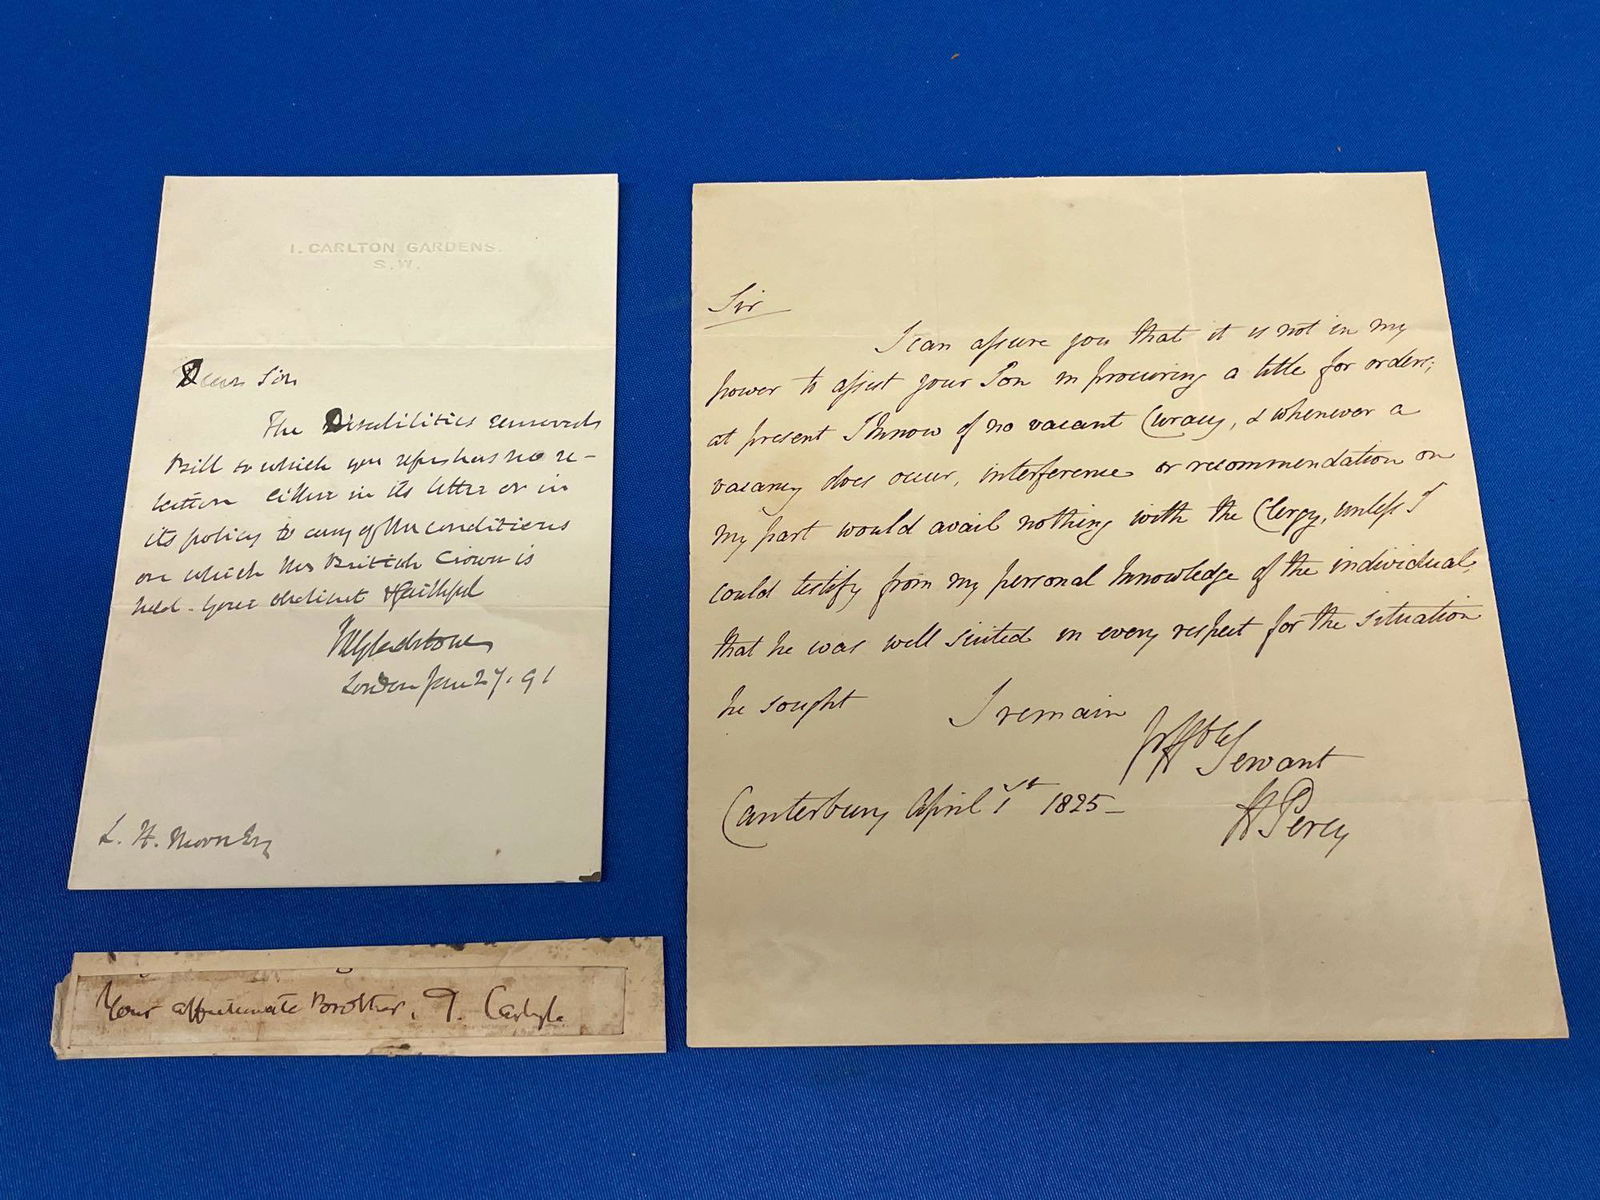 1. CARLTON GARDENS.
S.W.
Dear Sir
The Disabilities removal
Bill to which you refer has no re-
lation either in its letter or in
its policy to any of the conditions
on which the British Crown is
held. Your obedient & faithful
WEGladstone
London Jan 27. 91
L. H. Moore Esq
Your affectionate Brother, T. Carlyle
Sir
I can assure you that it is not in my
power to assist your Son in procuring a title for orders;
at present I know of no vacant Curacy, & whenever a
vacancy does occur, interference or recommendation on
my part would avail nothing with the Clergy, unless I
could testify from my personal knowledge of the individual,
that he was well suited in every respect for the situation
he sought I remain
Servant
Canterbury April 1st 1825 –
H Percy